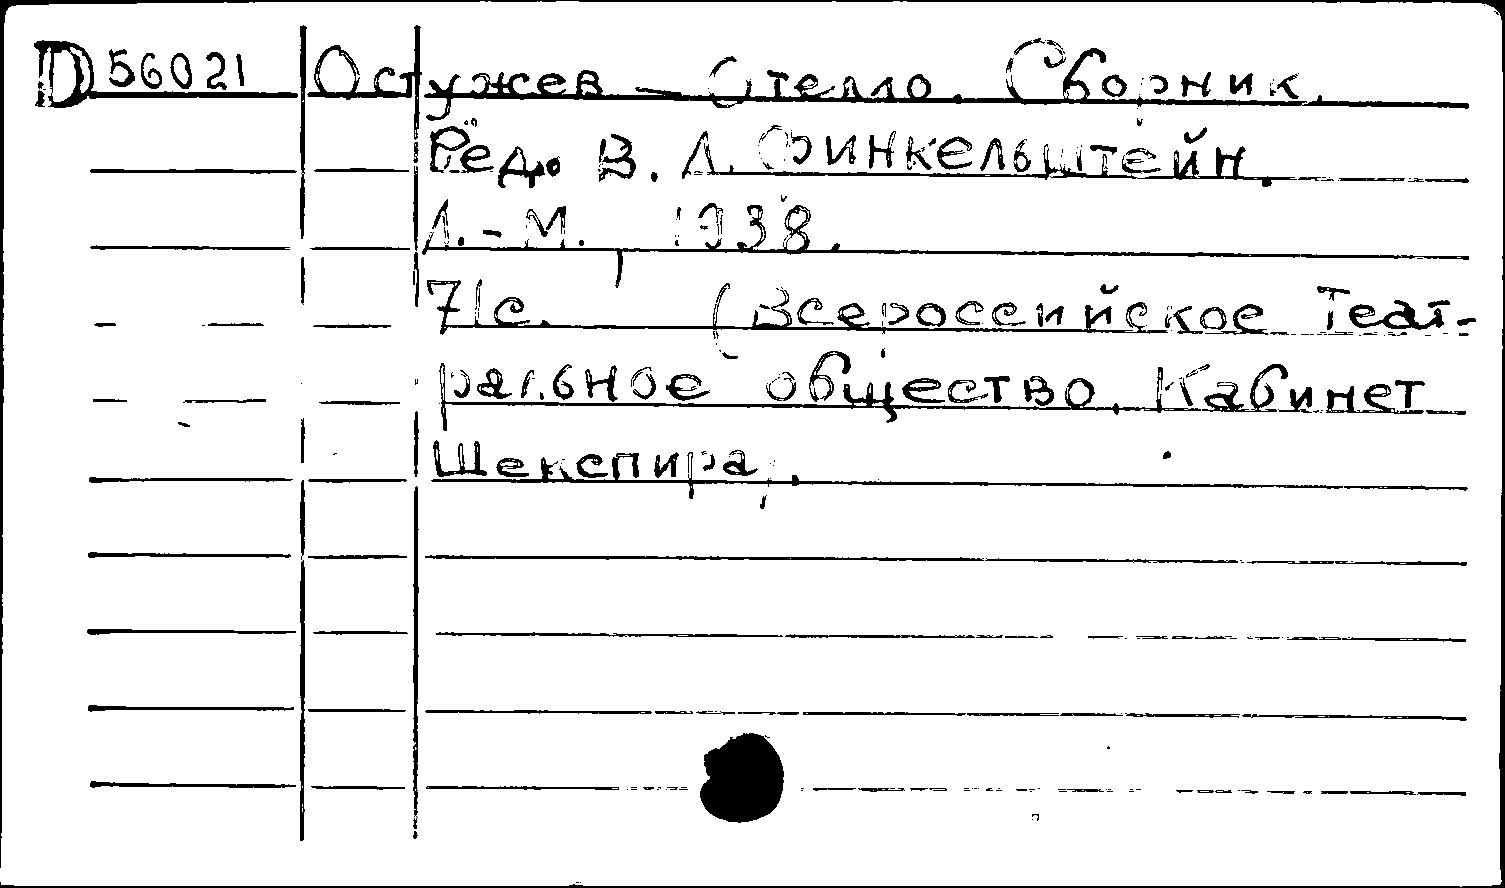 D56021 Остужев – Отелло. Сборник.
Ред. В. Л. Финкельштейн.
Л.-М., 1938.
71с. (Всероссийское Теат-
ральное общество. Кабинет
Шекспира).